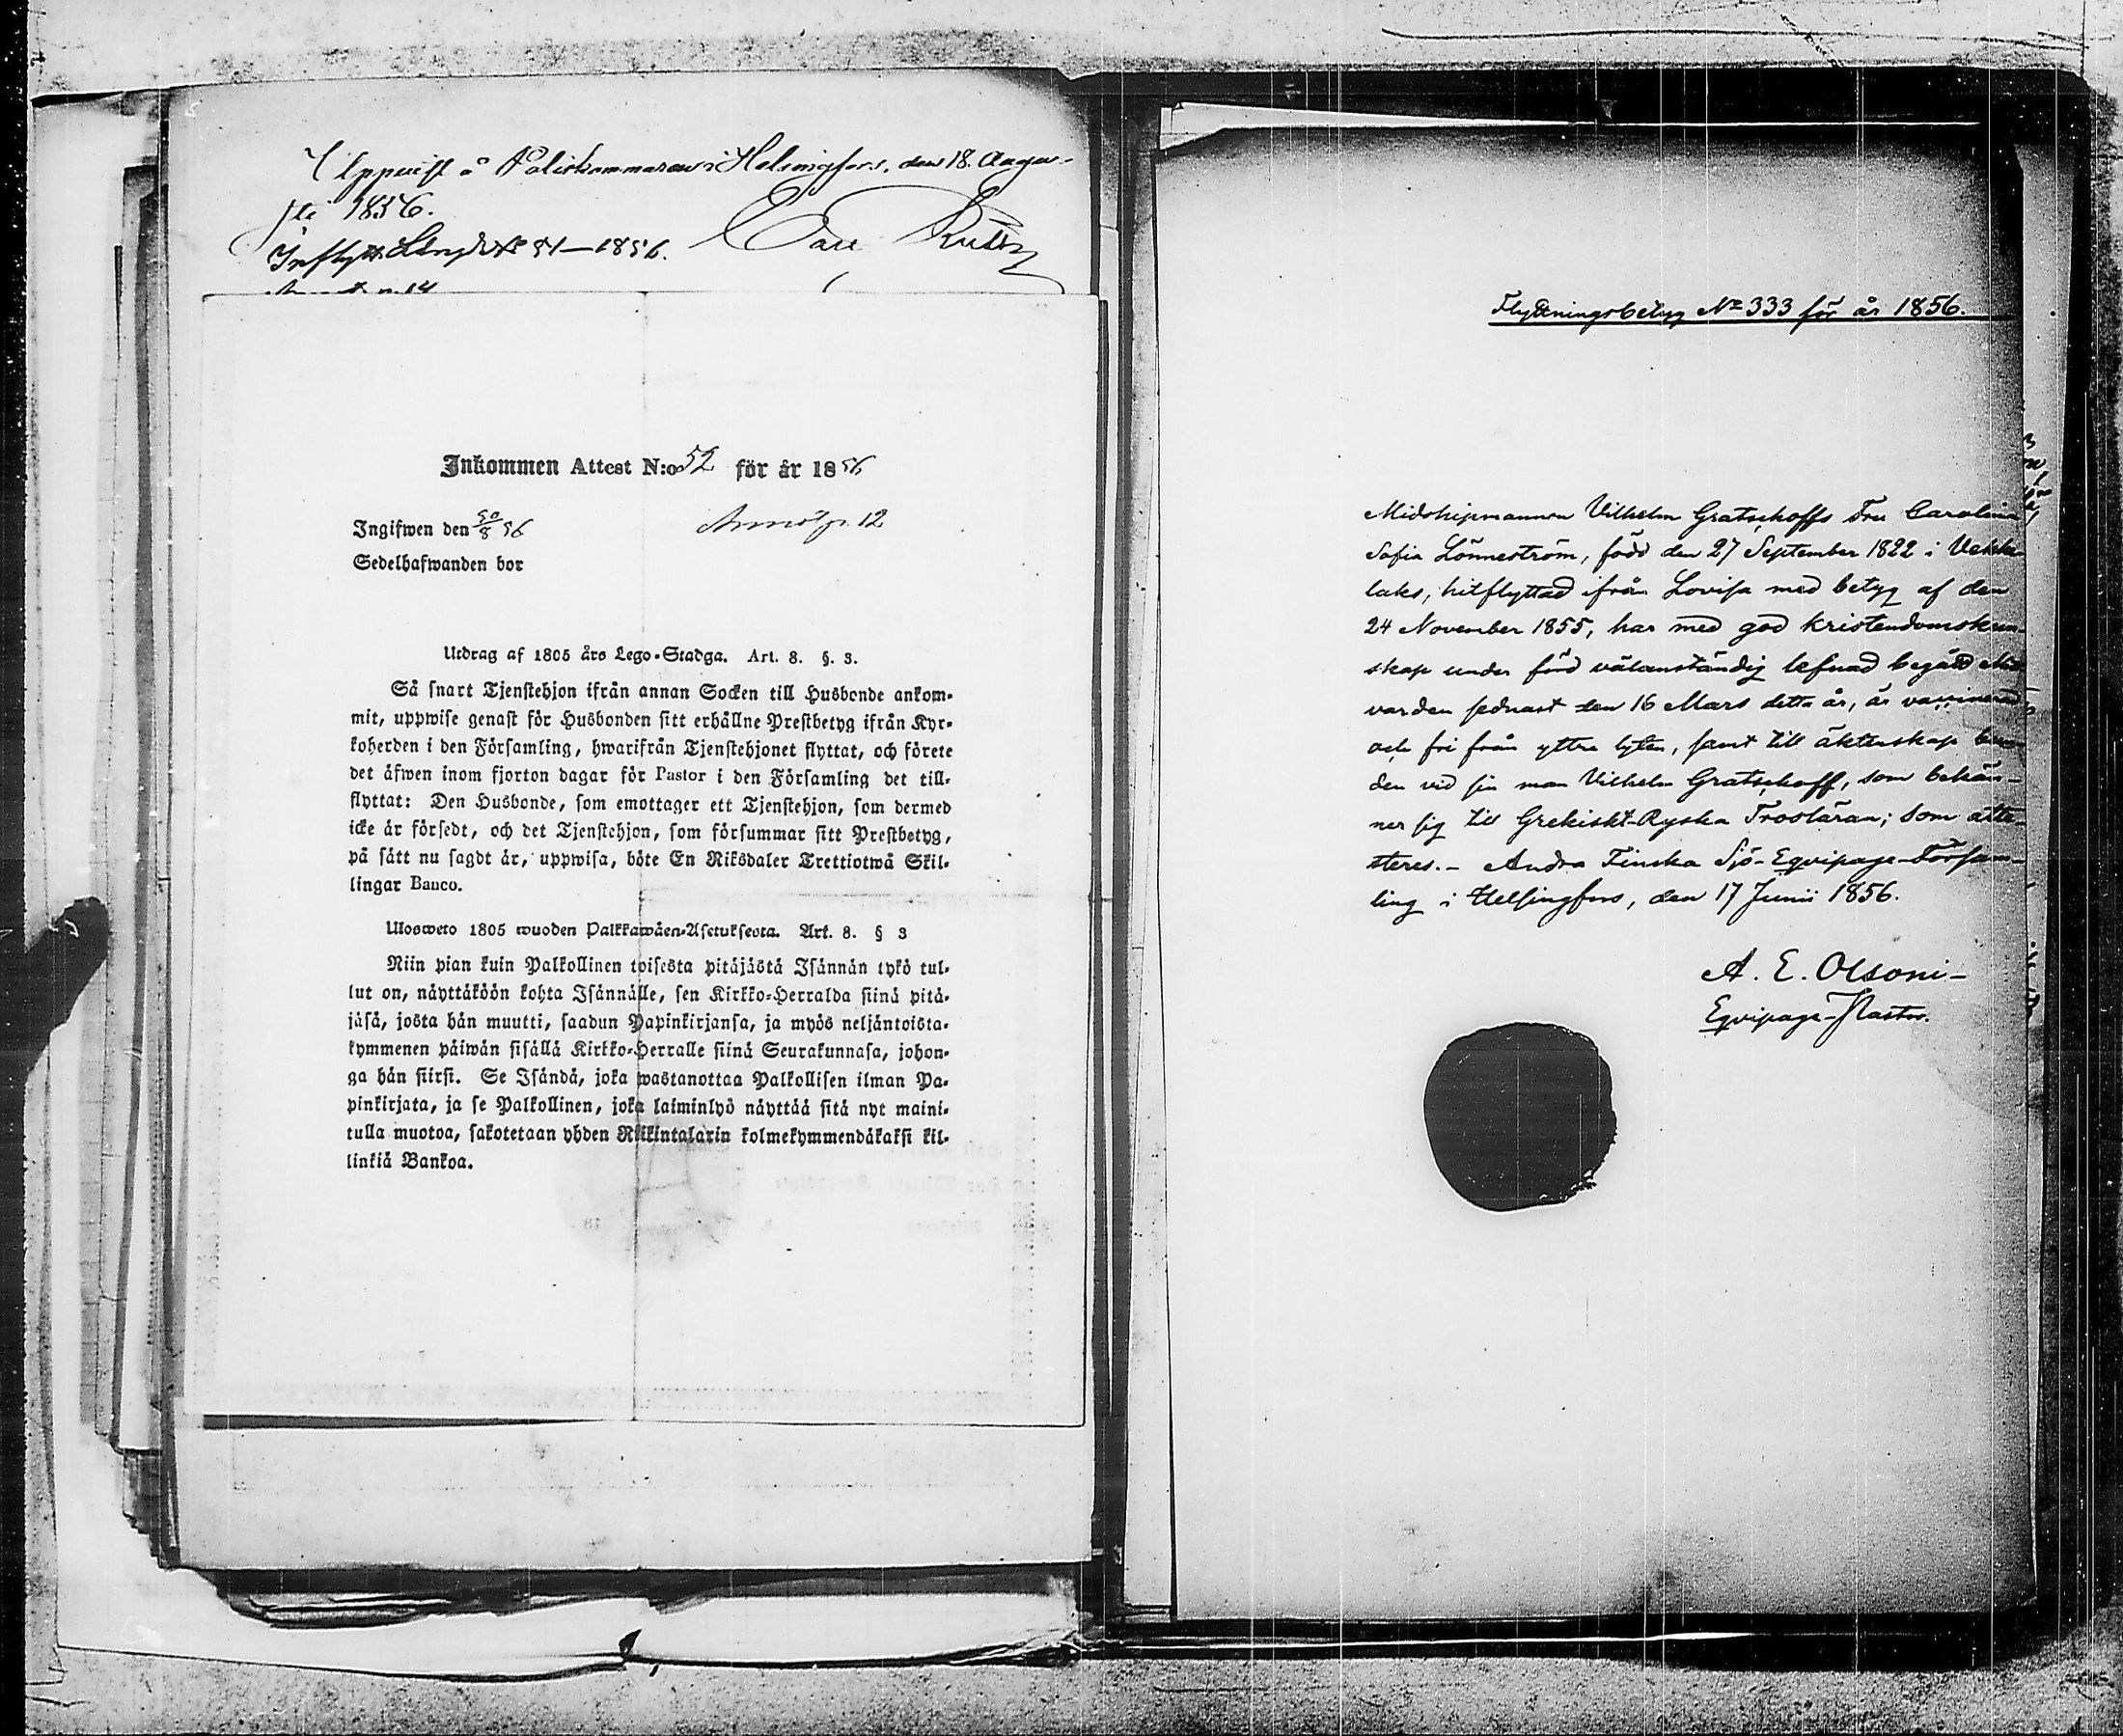 Uppvist å Poliskammaren i Helsingfors, den 18. Augu-
sti 1856.
Inflytt. Längd № 51—1856.
Inkommen Attest N:o 52 för år 1856
Ingifwen den 20/8 56
Annot p. 12
Sedelhafwanden bor
Utdrag af 1805 års Lego-Stadga. Art. 8. §. 3.
Så snart Tjenstehjon ifrån annan Socken till Husbonde ankom-
mit, uppwise genast för Husbonden sitt erhållne Prestbetyg ifrån Kyr-
koherden i den Församling, hwarifrån Tjenstehjonet flyttat, och förete
det äfwen inom fjorton dagar för Pastor i den Församling det till-
flyttat: Den Husbonde, som emottager ett Tjenstehjon, som dermed
icke är försedt, och det Tjenstehjon, som försummar sitt Prestbetyg,
på sätt nu sagdt är, uppwisa, böte En Riksdaler Trettiotwå Skil-
lingar Banco.
Ulosweto 1805 wuoden Palkkawäen-Asetuksesta. Art. 8. § 3
Niin pian kuin Palkollinen toisesta pitäjästä Isännän tykö tul-
lut on, näyttäköön kohta Isännälle, sen Kirkko-Herralda siinä pitä-
jäsä, josta hän muutti, saadun Papinkirjansa, ja myös neljäntoista-
kymmenen päiwän sisällä Kirkko-Herralle siinä Seurakunnasa, johon-
ga hän siirsi. Se Isändä, joka wastanottaa Palkollisen ilman Pa-
pinkirjata, ja se Palkollinen, joka laiminlyö näyttää sitä nyt maini-
tulla muotoa, sakotetaan yhden Riikintalarin kolmekymmendäkaksi kil-
linkiä Bankoa.
Flyttningsbetyg № 333 för år 1856.
Midshipmannen Vilhelm Gratschoffs Fru Carolina
Sofia Lönneström, född den 27 September 1822 i Vekke-
laks, hitflyttad ifrån Lovisa med betyg af den
24 November 1855, har med god kristendomskun-
skap under förd välanständig lefnad begått
varden sednast den 16 Mars detta år, är vaccinerad
och fri från yttre lyten, samt till äktenskap
den vid sin man Vilhelm Gratschoff, som bekän-
ner sig till Grekiskt-Ryska Trosläran; som atte-
steres.- Andra Finska Sjö-Eqvipage-Försam-
ling i Helsingfors, den 17 Junii 1856.
A. E. Olsoni-
Eqvipage-Pastor.